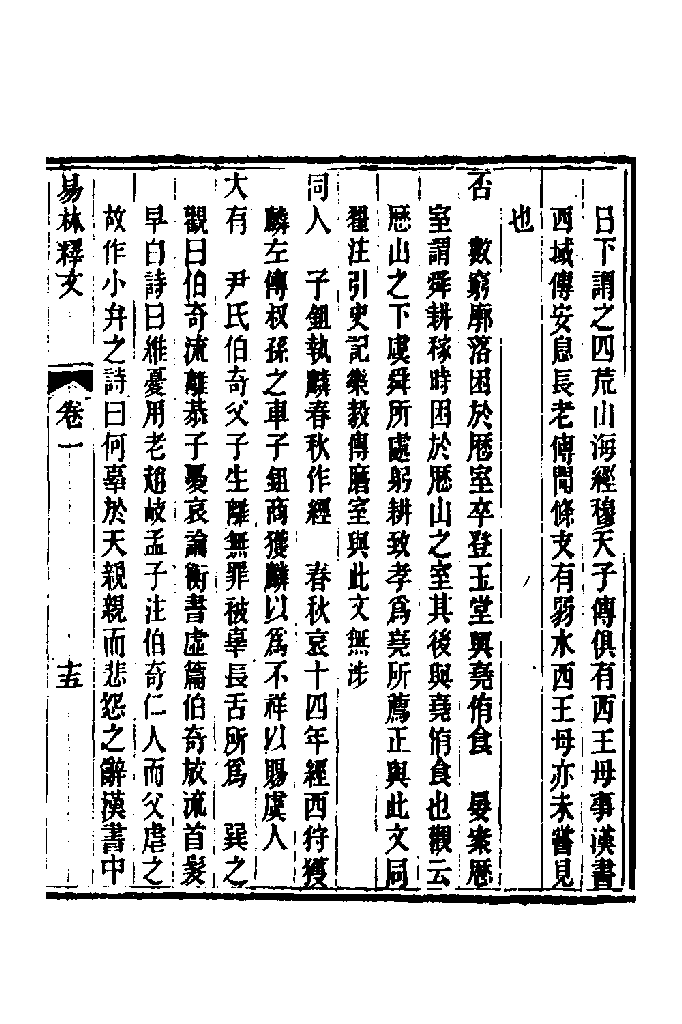 日下謂之四荒山海經穆天子傳俱有西王母事漢書
西域傳安息長老傳聞條支有弱水西王母亦未嘗見
也
否　數窮廓落困於厯室卒登玉堂與堯侑食　晏案厯
室謂舜耕稼時困於厯山之室其後與堯侑食也觀云
厯山之下虞舜所處躬耕致孝爲堯所薦正與此文同
糧注引史記樂毅傳磿室與此文無涉
同人　子鉏執麟春秋作經　春秋哀十四年經西狩獲
麟左傳叔孫之車子鉏商獲麟以爲不祥以賜虞人
大有　尹氏伯奇父子生離無罪被辜長舌所爲　巽之
觀曰伯奇流離恭子憂哀論衡書虛篇伯奇放流首髮
早白詩曰維憂用老趙岐孟子注伯奇仁人而父虐之
故作小弁之詩曰何辜於天親親而悲怨之辭漢書中
易林釋文　卷一　十五